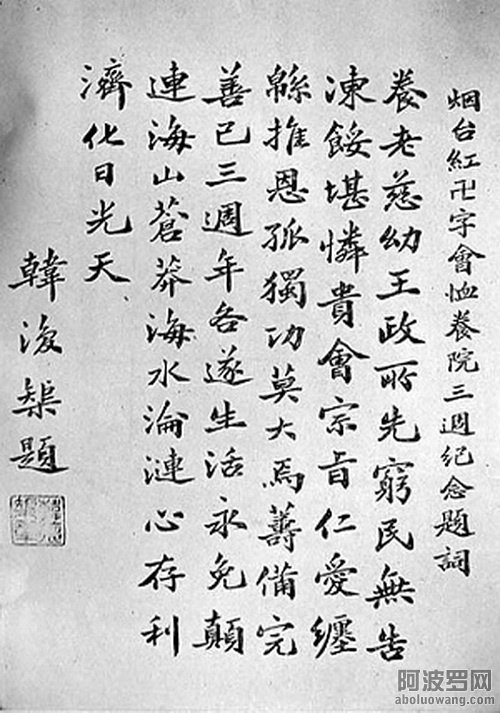 烟台紅卍字會恤養院三週紀念題詞
養老慈幼王政所先窮民無告
凍餒堪憐貴會宗旨仁愛纏
緜推恩孤獨功莫大焉籌備完
善已三週年各遂生活永免顛
連海山蒼莽海水淪漣心存利
濟化日光天
韓復榘題
阿波罗网
aboluowang.com